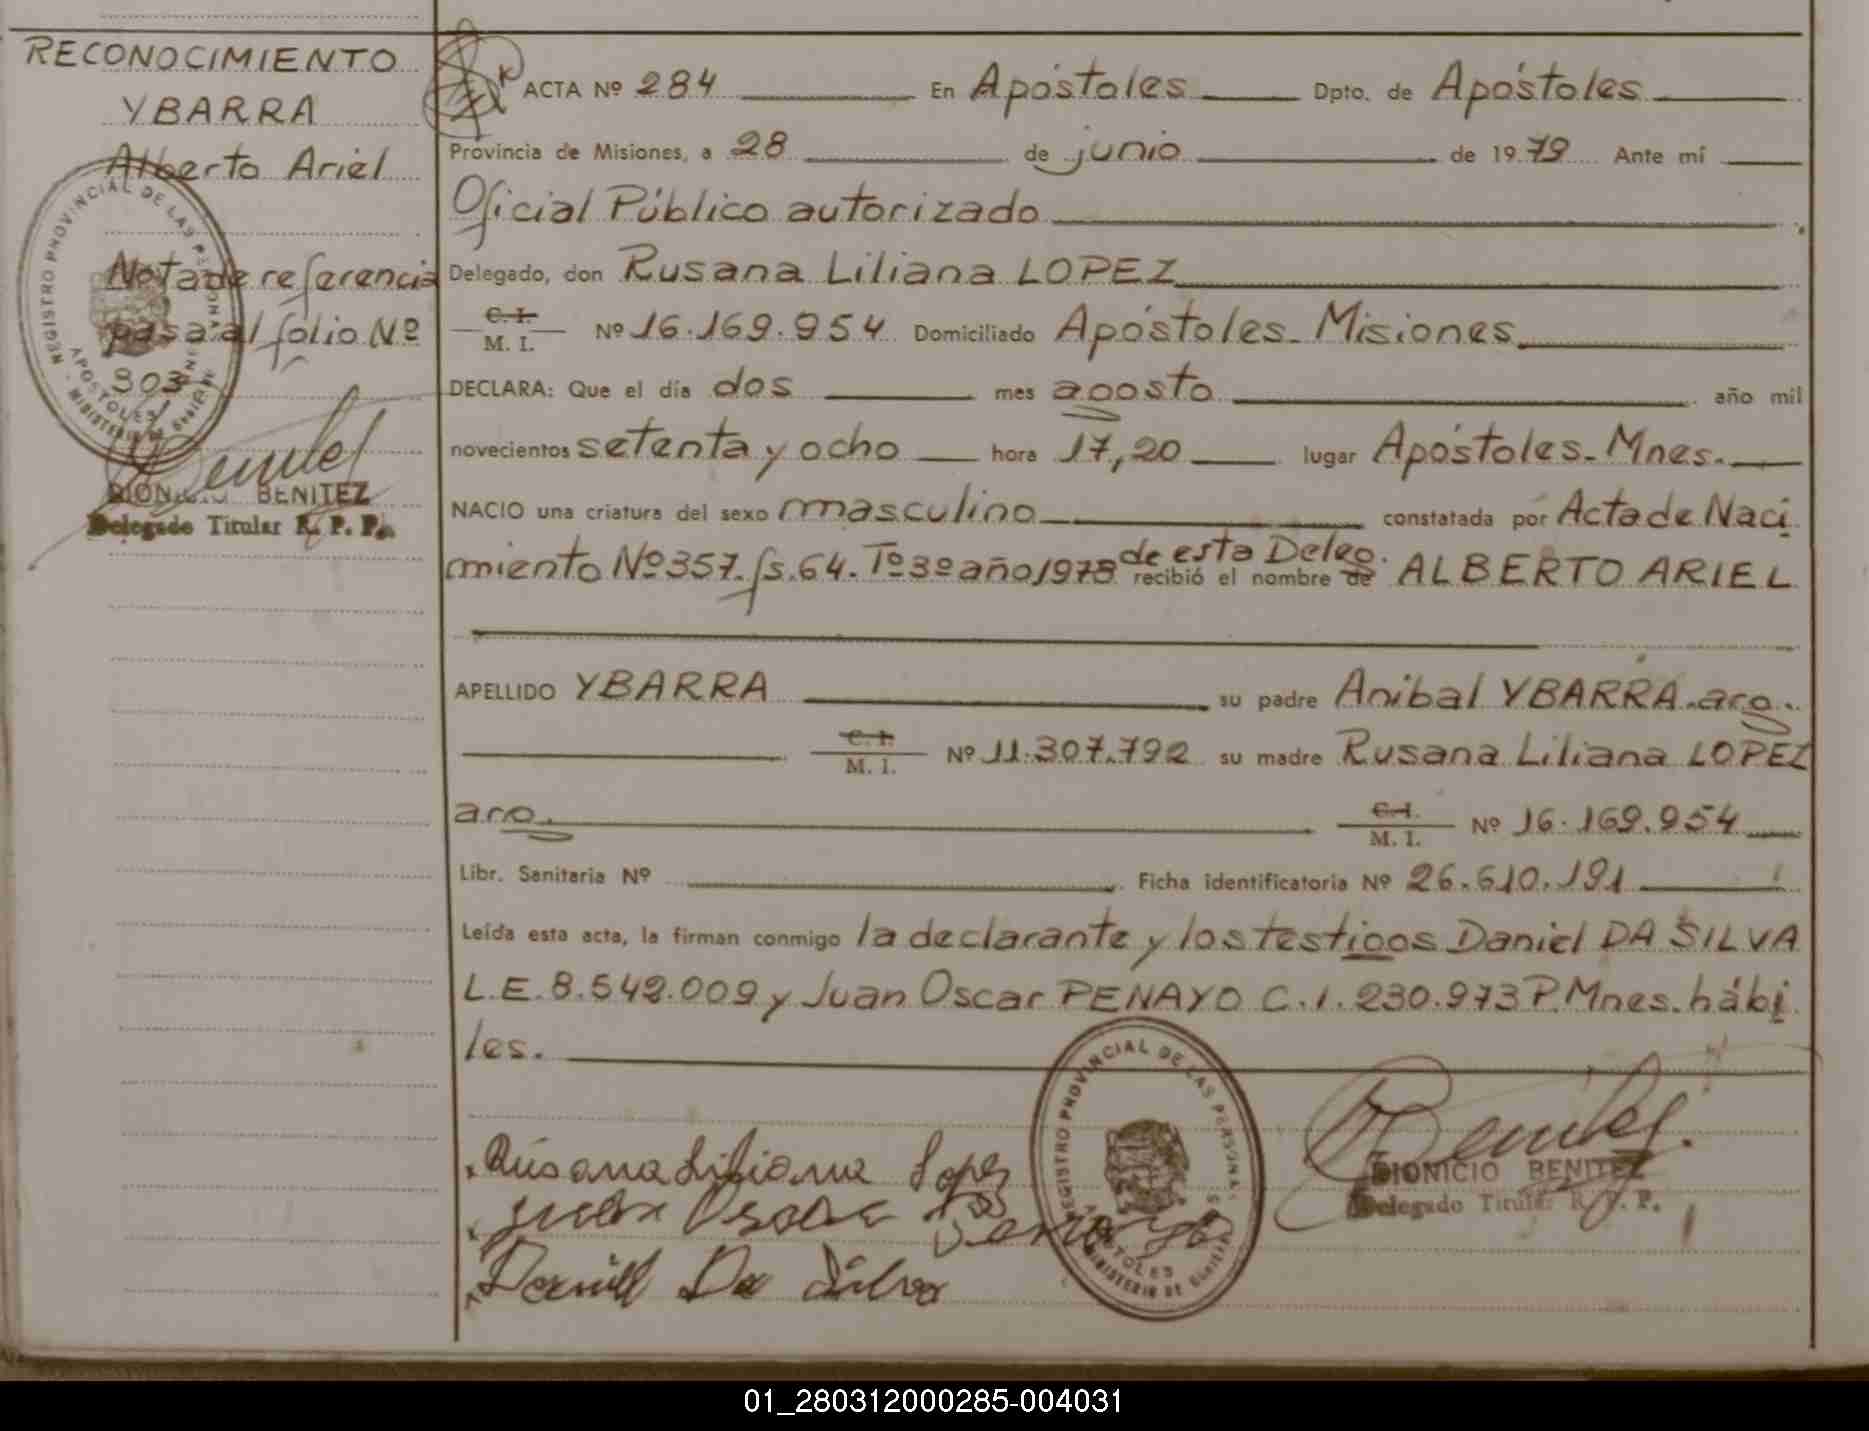 RECONOCIMIENTO
YBARRA
Alberto Ariel
Nota de referencia
pasa al folio Nº
303
DIONICIO BENITEZ
Delegado Titular R. P. P.
REGISTRO PROVINCIAL DE LAS PERSONAS
APOSTOLES
MINISTERIO DE GOBIERNO
ACTA Nº 284 En Apóstoles Dpto. de Apóstoles
Provincia de Misiones, a 28 de junio de 1979 Ante mí
Oficial Público autorizado
Delegado, don Rusana Liliana LOPEZ
C. I.
M. I. Nº 16.169.954 Domiciliado Apóstoles-Misiones
DECLARA: Que el día dos mes agosto año mil
novecientos setenta y ocho hora 17,20 lugar Apóstoles-Mnes.
NACIO una criatura del sexo masculino constatada por Acta de Naci
miento Nº 357.fs.64.Tº3º año 1978 de esta Deleg. recibió el nombre de ALBERTO ARIEL
APELLIDO YBARRA su padre Anibal YBARRA.arg.
C. I.
M. I. Nº 11.307.792 su madre Rusana Liliana LOPEZ
arg. C. I.
M. I. Nº 16.169.954
Libr. Sanitaria Nº Ficha identificatoria Nº 26.610.191
Leída esta acta, la firman conmigo la declarante y los testigos Daniel DA SILVA
L.E.8.542.009 y Juan Oscar PENAYO C.I.230.973 P.Mnes.hábi
les.
Rusana Liliana Lopez
Juan Oscar Penayo
Daniel Da Silva
REGISTRO PROVINCIAL DE LAS PERSONAS
APOSTOLES
MINISTERIO DE GOBIERNO
Benitez
DIONICIO BENITEZ
Delegado Titular R. P. P.
01_280312000285-004031